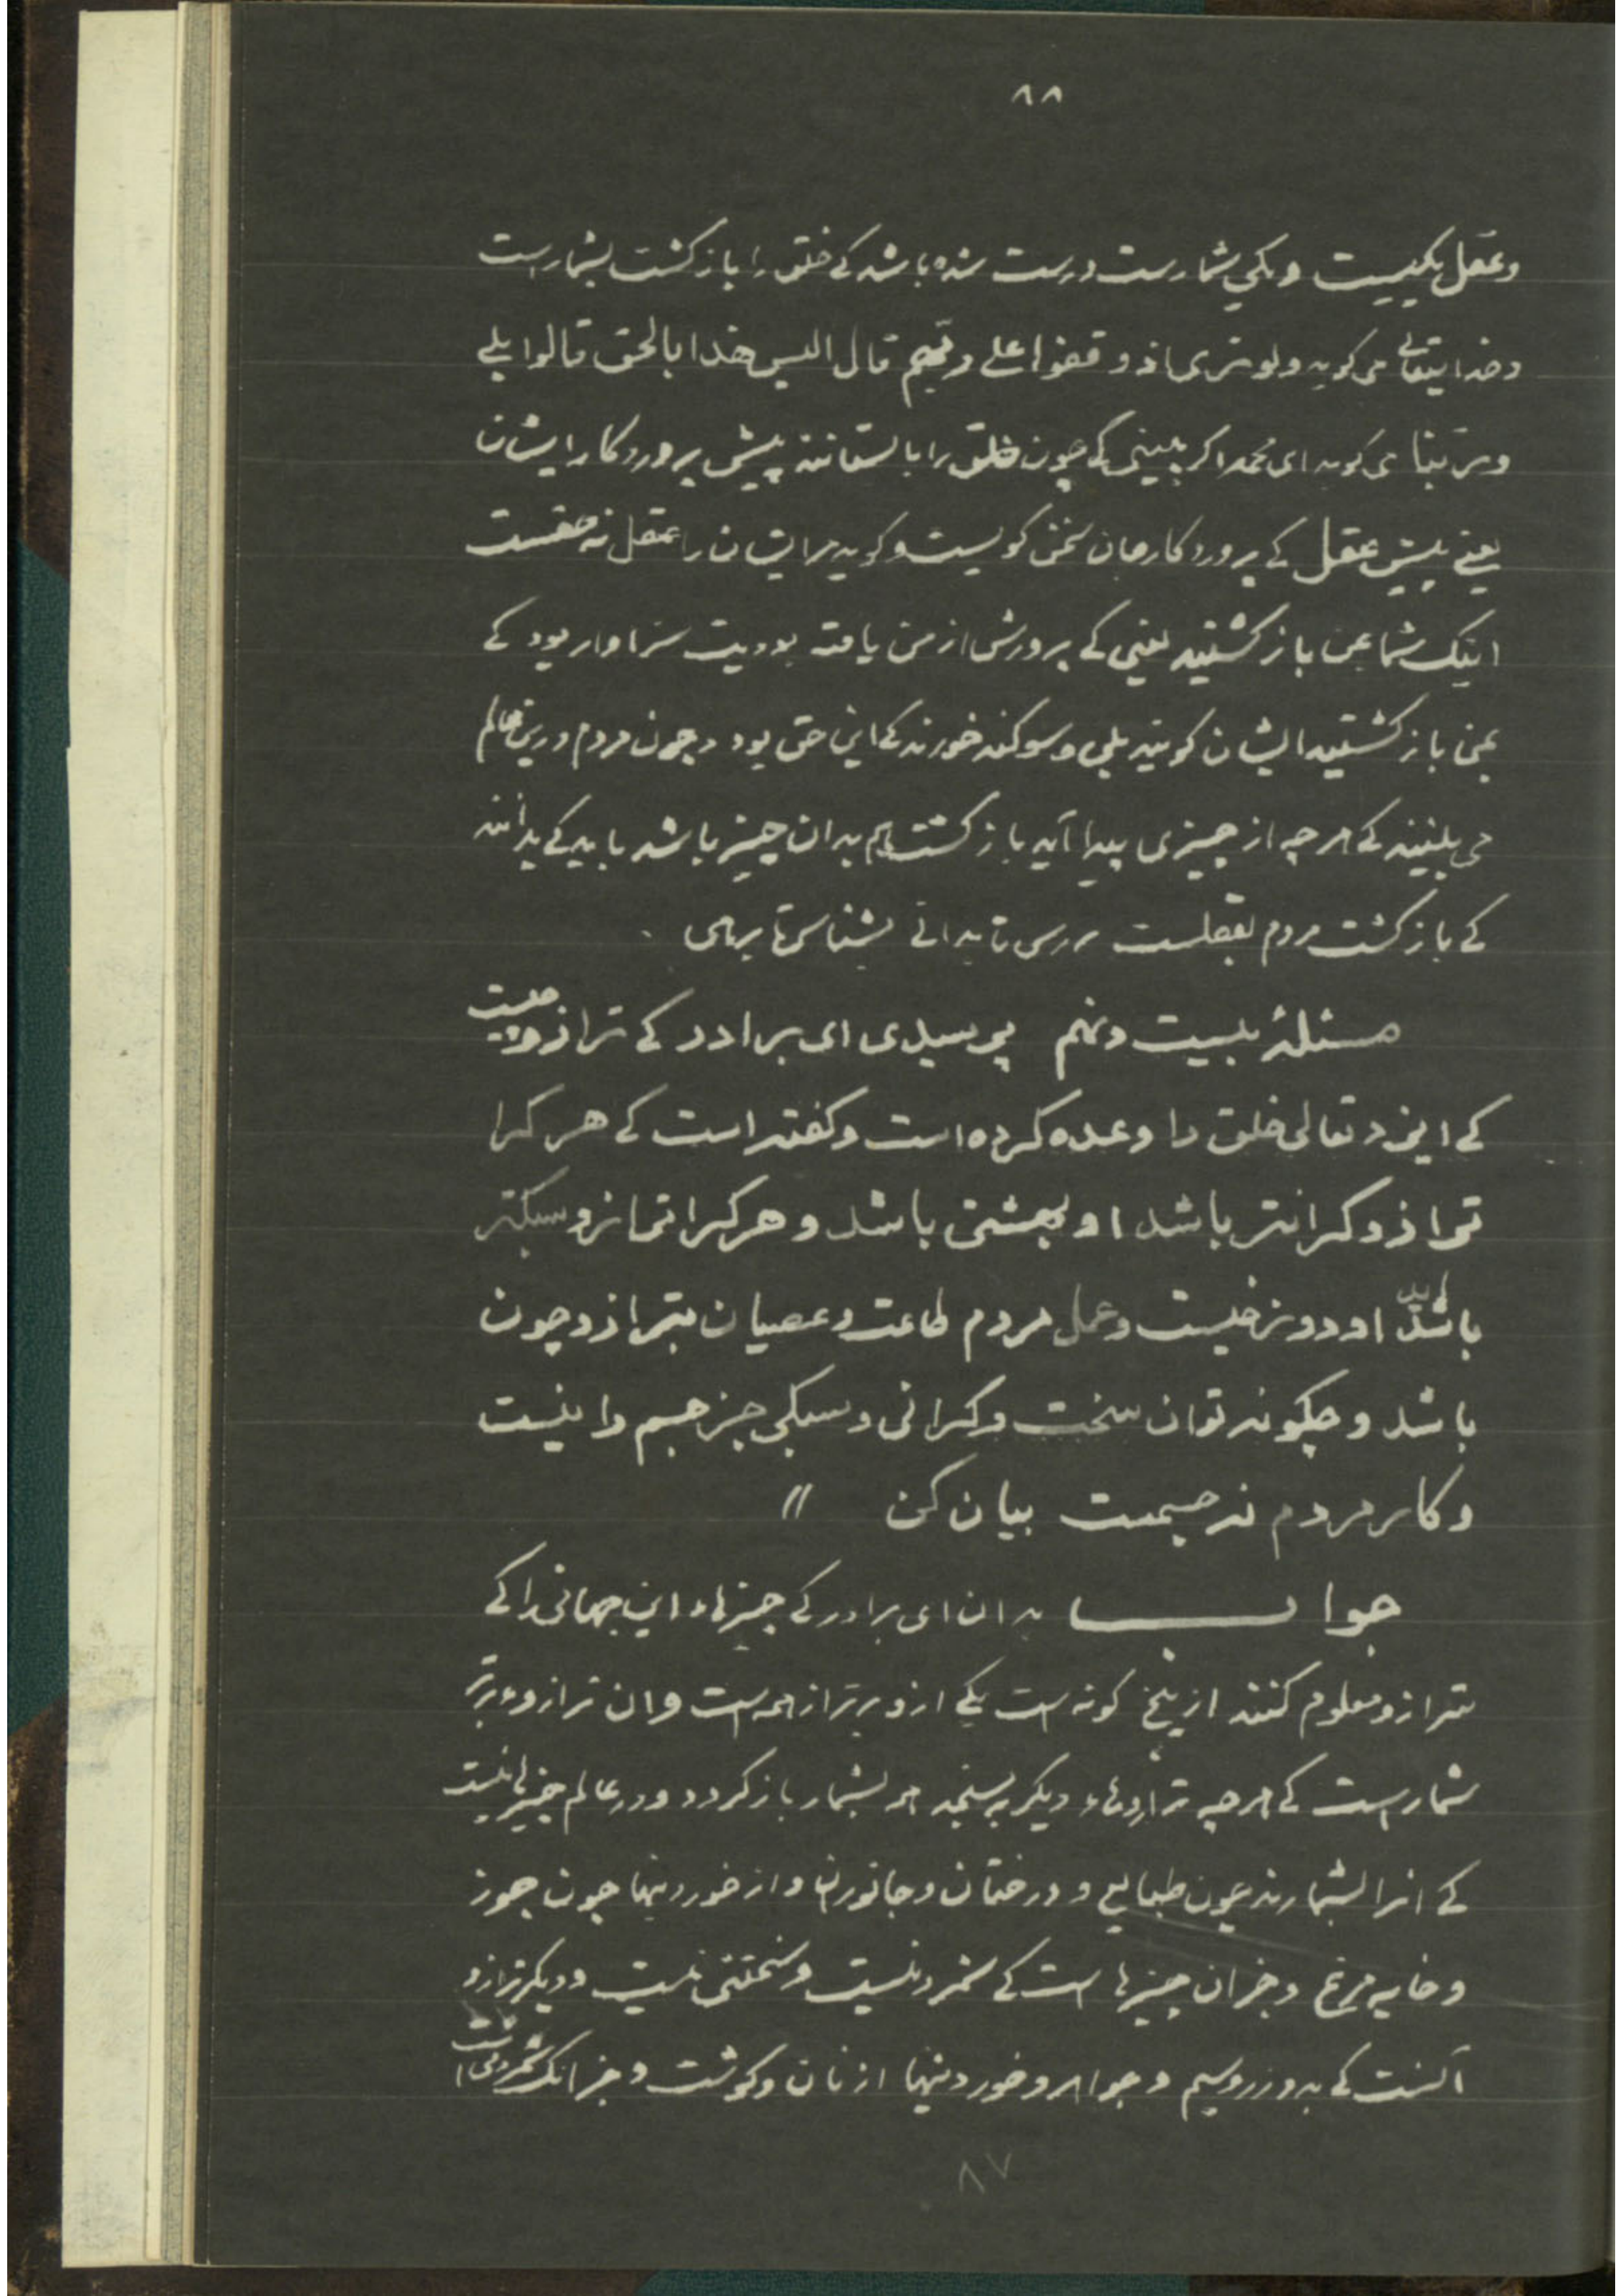 ۸۸
وعقل یکیست و یکی شمارست درست شده باشد کے خلق را بازکشت بشمارست
وخدایتعالی می کوید ولوتری اذ وقفوا علے ربّهم قال الیس هذا بالحق قالوا بلے
وربّنا می کوید ای محمد اکر ببینی کے چون خلق را بایستانند پیش پروردکار ایشان
یعنے پیش عقل کے پروردکار جان سخن کویست وکوید مر ایشان را عقل نه حقست
اینک شما بمن بازکشتید یعنی کے پرورش از من یافته بودیت سزاوار بود کے
بمن بازکشتید ایشان کویند بلی وسوکند خورند کے این حق بود وچون مردم درین عالم
می بینند کے هرچه از چیزی پیدا آید بازکشت هم بدان چیز باشد باید کے بدانند
کے بازکشت مردم بعقلست بررس تا بدانے بشناس تا برهی
مسئلهٔ بیست ونهم پرسیدی ای برادر کے ترازو چیست
کے ایزد تعالی خلق را وعده کرده است وکفته است کے هرکرا
ترازو کرانتر باشد او بهشتی باشد و هرکرا ترازو سبکتر
باشد او دوزخیست وعمل مردم طاعت وعصیان بترازو چون
باشد و چکونه توان سخت وکرانی وسبکی جز جسم را نیست
وکار مردم نه جسمست بیان کن //
جواب بدان ای برادر کے چیزهاء این جهانی را کے
بترازو معلوم کنند از پنج کونه است یکے ازو برتر از همه است وان ترازوء برتر
شمارست کے هرچه ترازوهاء دیکر بسنجد هم بشمار بازکردد ودر عالم چیزهائیست
کے انرا بشمارند چون طبایع و درختان وجانوران و از خوردنیها چون جوز
وخایه مرغ وجزان چیزها است کے شمردنیست وسختنی نیست ودیکر ترازو
آنست کے بدو زر وسیم وجواهر وخوردنیها از نان وکوشت وجز انک شمردنی است
۸۷